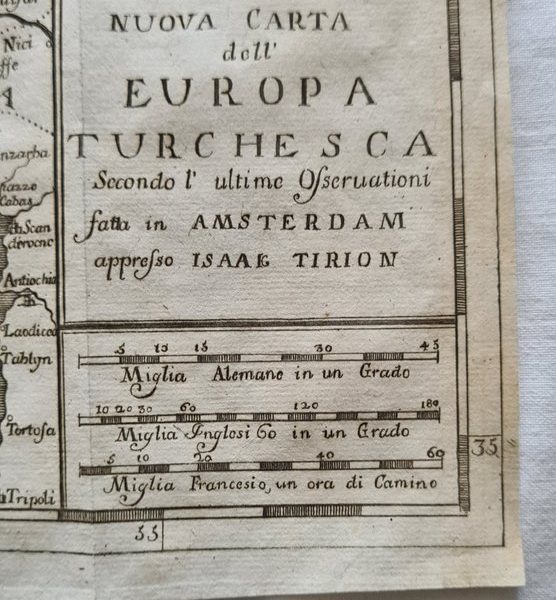 NUOVA CARTA
dell'
EUROPA
TURCHESCA
Secondo l' ultime Osseruationi
fatta in AMSTERDAM
appresso ISAAK TIRION
5 10 15 30 45
Miglia Alemane in un Grado
10 20 30 60 120 180
Miglia Inglesi 60 in un Grado
5 10 20 40 60
Miglia Francesi o un ora di Camino
35
55
Nici
nzarba
Cabas
Scan
derone
Antiochia
Laodicea
Tablyn
Tortosa
Tripoli